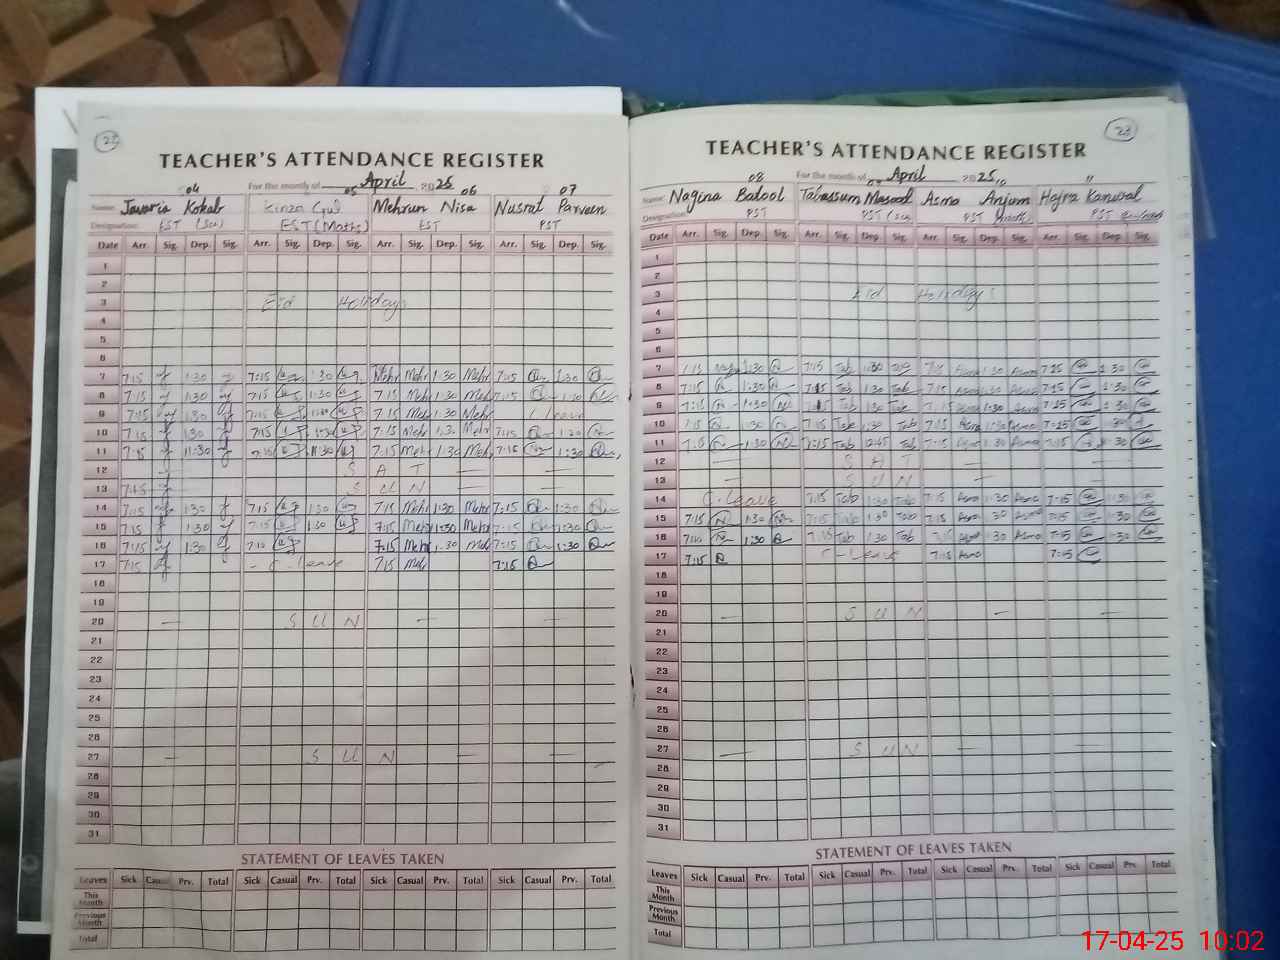 22
TEACHER'S ATTENDANCE REGISTER
For the month of April 2025
04 05 06 07
Name: Javaria Kokab Kinza Gul Mehrun Nisa Nusrat Parveen
Designation: EST (Sci) EST (Maths) EST PST
Date Arr. Sig. Dep. Sig. Arr. Sig. Dep. Sig. Arr. Sig. Dep. Sig. Arr. Sig. Dep. Sig.
1
2
3 Eid Holidays
4
5
6
7 7:15 1:30 7:15 1:30 Mehr Mehr 1:30 Mehr 7:15 1:30
8 7:15 1:30 7:15 1:30 7:15 Mehr 1:30 Mehr 7:15 1:30
9 7:15 1:30 7:15 7:15 Mehr 1:30 Mehr Leave
10 7:15 1:30 7:15 1:30 7:15 Mehr 1:30 Mehr 7:15 1:30
11 7:15 11:30 7:15 11:30 7:15 Mehr 1:30 Mehr 7:15 1:30
12 — S A T — —
13 7:15 — S U N — —
14 7:15 1:30 7:15 1:30 7:15 Mehr 1:30 Mehr 7:15 1:30
15 7:15 1:30 7:15 1:30 7:15 Mehr 1:30 Mehr 7:15 1:30
16 7:15 1:30 7:10 7:15 Mehr 1:30 Mehr 7:15 1:30
17 7:15 - C. leave 7:15 Mehr 7:15
18
19
20 — S U N — —
21
22
23
24
25
26
27 — S U N — —
28
29
30
31
STATEMENT OF LEAVES TAKEN
Leaves Sick Casual Prv. Total Sick Casual Prv. Total Sick Casual Prv. Total Sick Casual Prv. Total
This Month
Previous Month
Total
23
TEACHER'S ATTENDANCE REGISTER
For the month of April 2025
08 09 10 11
Name: Nagina Batool Tabassum Masood Asma Anjum Hajra Kanwal
Designation: PST PST (Sci) PST (Math) PST
Date Arr. Sig. Dep. Sig. Arr. Sig. Dep. Sig. Arr. Sig. Dep. Sig. Arr. Sig. Dep. Sig.
1
2
3 Eid Holidays
4
5
6
7 7:15 1:30 7:15 Tab 1:30 Tab 7:15 Asma 1:30 Asma 7:25 1:30
8 7:15 1:30 7:15 Tab 1:30 Tab 7:15 Asma 1:30 Asma 7:15 1:30
9 7:15 1:30 7:15 Tab 1:30 Tab 7:15 Asma 1:30 Asma 7:25 1:30
10 7:15 1:30 7:15 Tab 1:30 Tab 7:15 Asma 1:30 Asma 7:25 1:30
11 7:15 1:30 7:15 Tab 12:45 Tab 7:15 Asma 1:30 Asma 7:15 1:30
12 — S A T — —
13 — S U N — —
14 C. leave 7:15 Tab 1:30 Tab 7:15 Asma 1:30 Asma 7:15 1:30
15 7:15 1:30 7:15 Tab 1:30 Tab 7:15 Asma 1:30 Asma 7:15 1:30
16 7:15 1:30 7:15 Tab 1:30 Tab 7:15 Asma 1:30 Asma 7:15 1:30
17 7:15 C-leave 7:15 Asma 7:15
18
19
20 — S U N — —
21
22
23
24
25
26
27 — S U N — —
28
29
30
31
STATEMENT OF LEAVES TAKEN
Leaves Sick Casual Prv. Total Sick Casual Prv. Total Sick Casual Prv. Total Sick Casual Prv. Total
This Month
Previous Month
Total
17-04-25 10:02